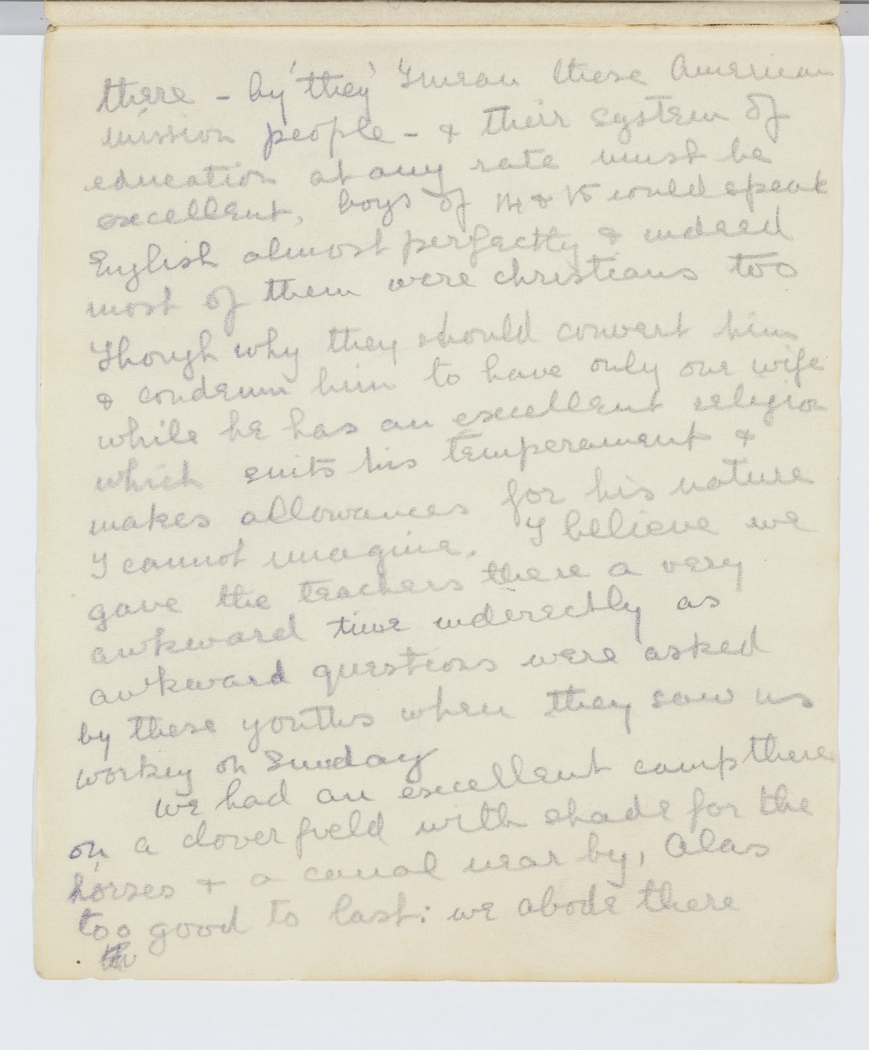 there - by 'they' I mean these American
mission people - & their system of
education at any rate must be
excellent, boys of 14 & 15 could speak
English almost perfectly & indeed
most of them were christians too
Though why they should convert him
& condemn him to have only one wife
while he has an excellent religion
which suits his temperament &
makes allowances for his nature
I cannot imagine. I believe we
gave the teachers there a very
awkward time inderectly as
awkward questions were asked
by these youths when they saw us
working on Sunday
we had an excellent camp there
on a clover field with shade for the
horses + a canal near by, Alas
too good to last: we abode there